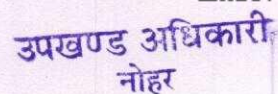 उपखण्ड अधिकारी,
नोहर